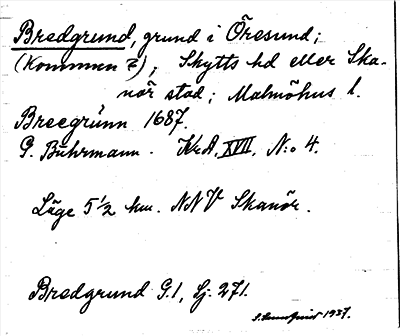 Bredgrund, grund i Öresund;
(Kommun?), Skytts hd eller Ska-
nör stad; Malmöhus l.
Breegrünn 1687.
G. Buhrmann. Kr.A. XVII. N:o 4.
Läge 5½ km. NNV Skanör.
Bredgrund G.1, Sj. 271.
1937.